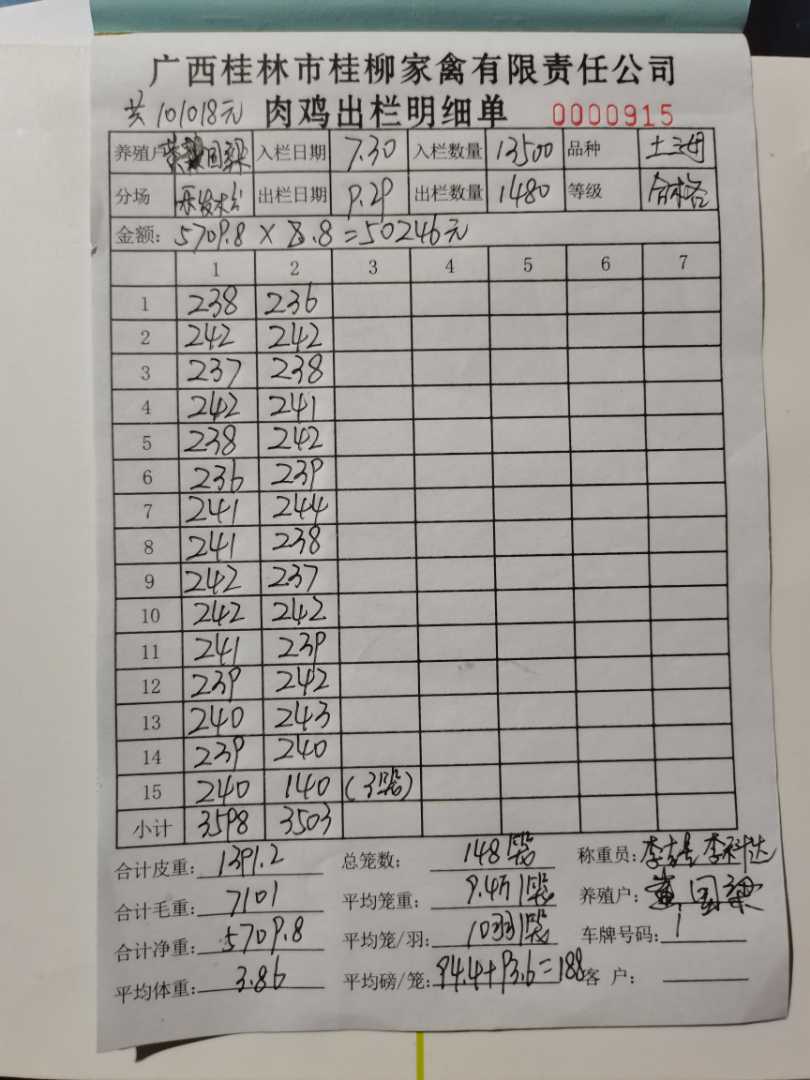 广西桂林市桂柳家禽有限责任公司
共101018元 肉鸡出栏明细单 0000915
养殖户 国梁 入栏日期 7.30 入栏数量 13500 品种 土三母
分场 出栏日期 9.29 出栏数量 1480 等级 合格
金额: 5709.8 × 8.8 = 50246元
1 2 3 4 5 6 7
1 238 236
2 242 242
3 237 238
4 242 241
5 238 242
6 236 239
7 241 244
8 241 238
9 242 237
10 242 242
11 241 239
12 239 242
13 240 243
14 239 240
15 240 140 (3笼)
小计 3598 3503
合计皮重: 1391.2 总笼数: 148笼 称重员: 李科达
合计毛重: 7101 平均笼重: 9.4斤/笼 养殖户: 黄国梁
合计净重: 5709.8 平均笼/羽: 10羽/笼 车牌号码:
平均体重: 3.86 平均磅/笼: 94.4+93.6=188 客 户: